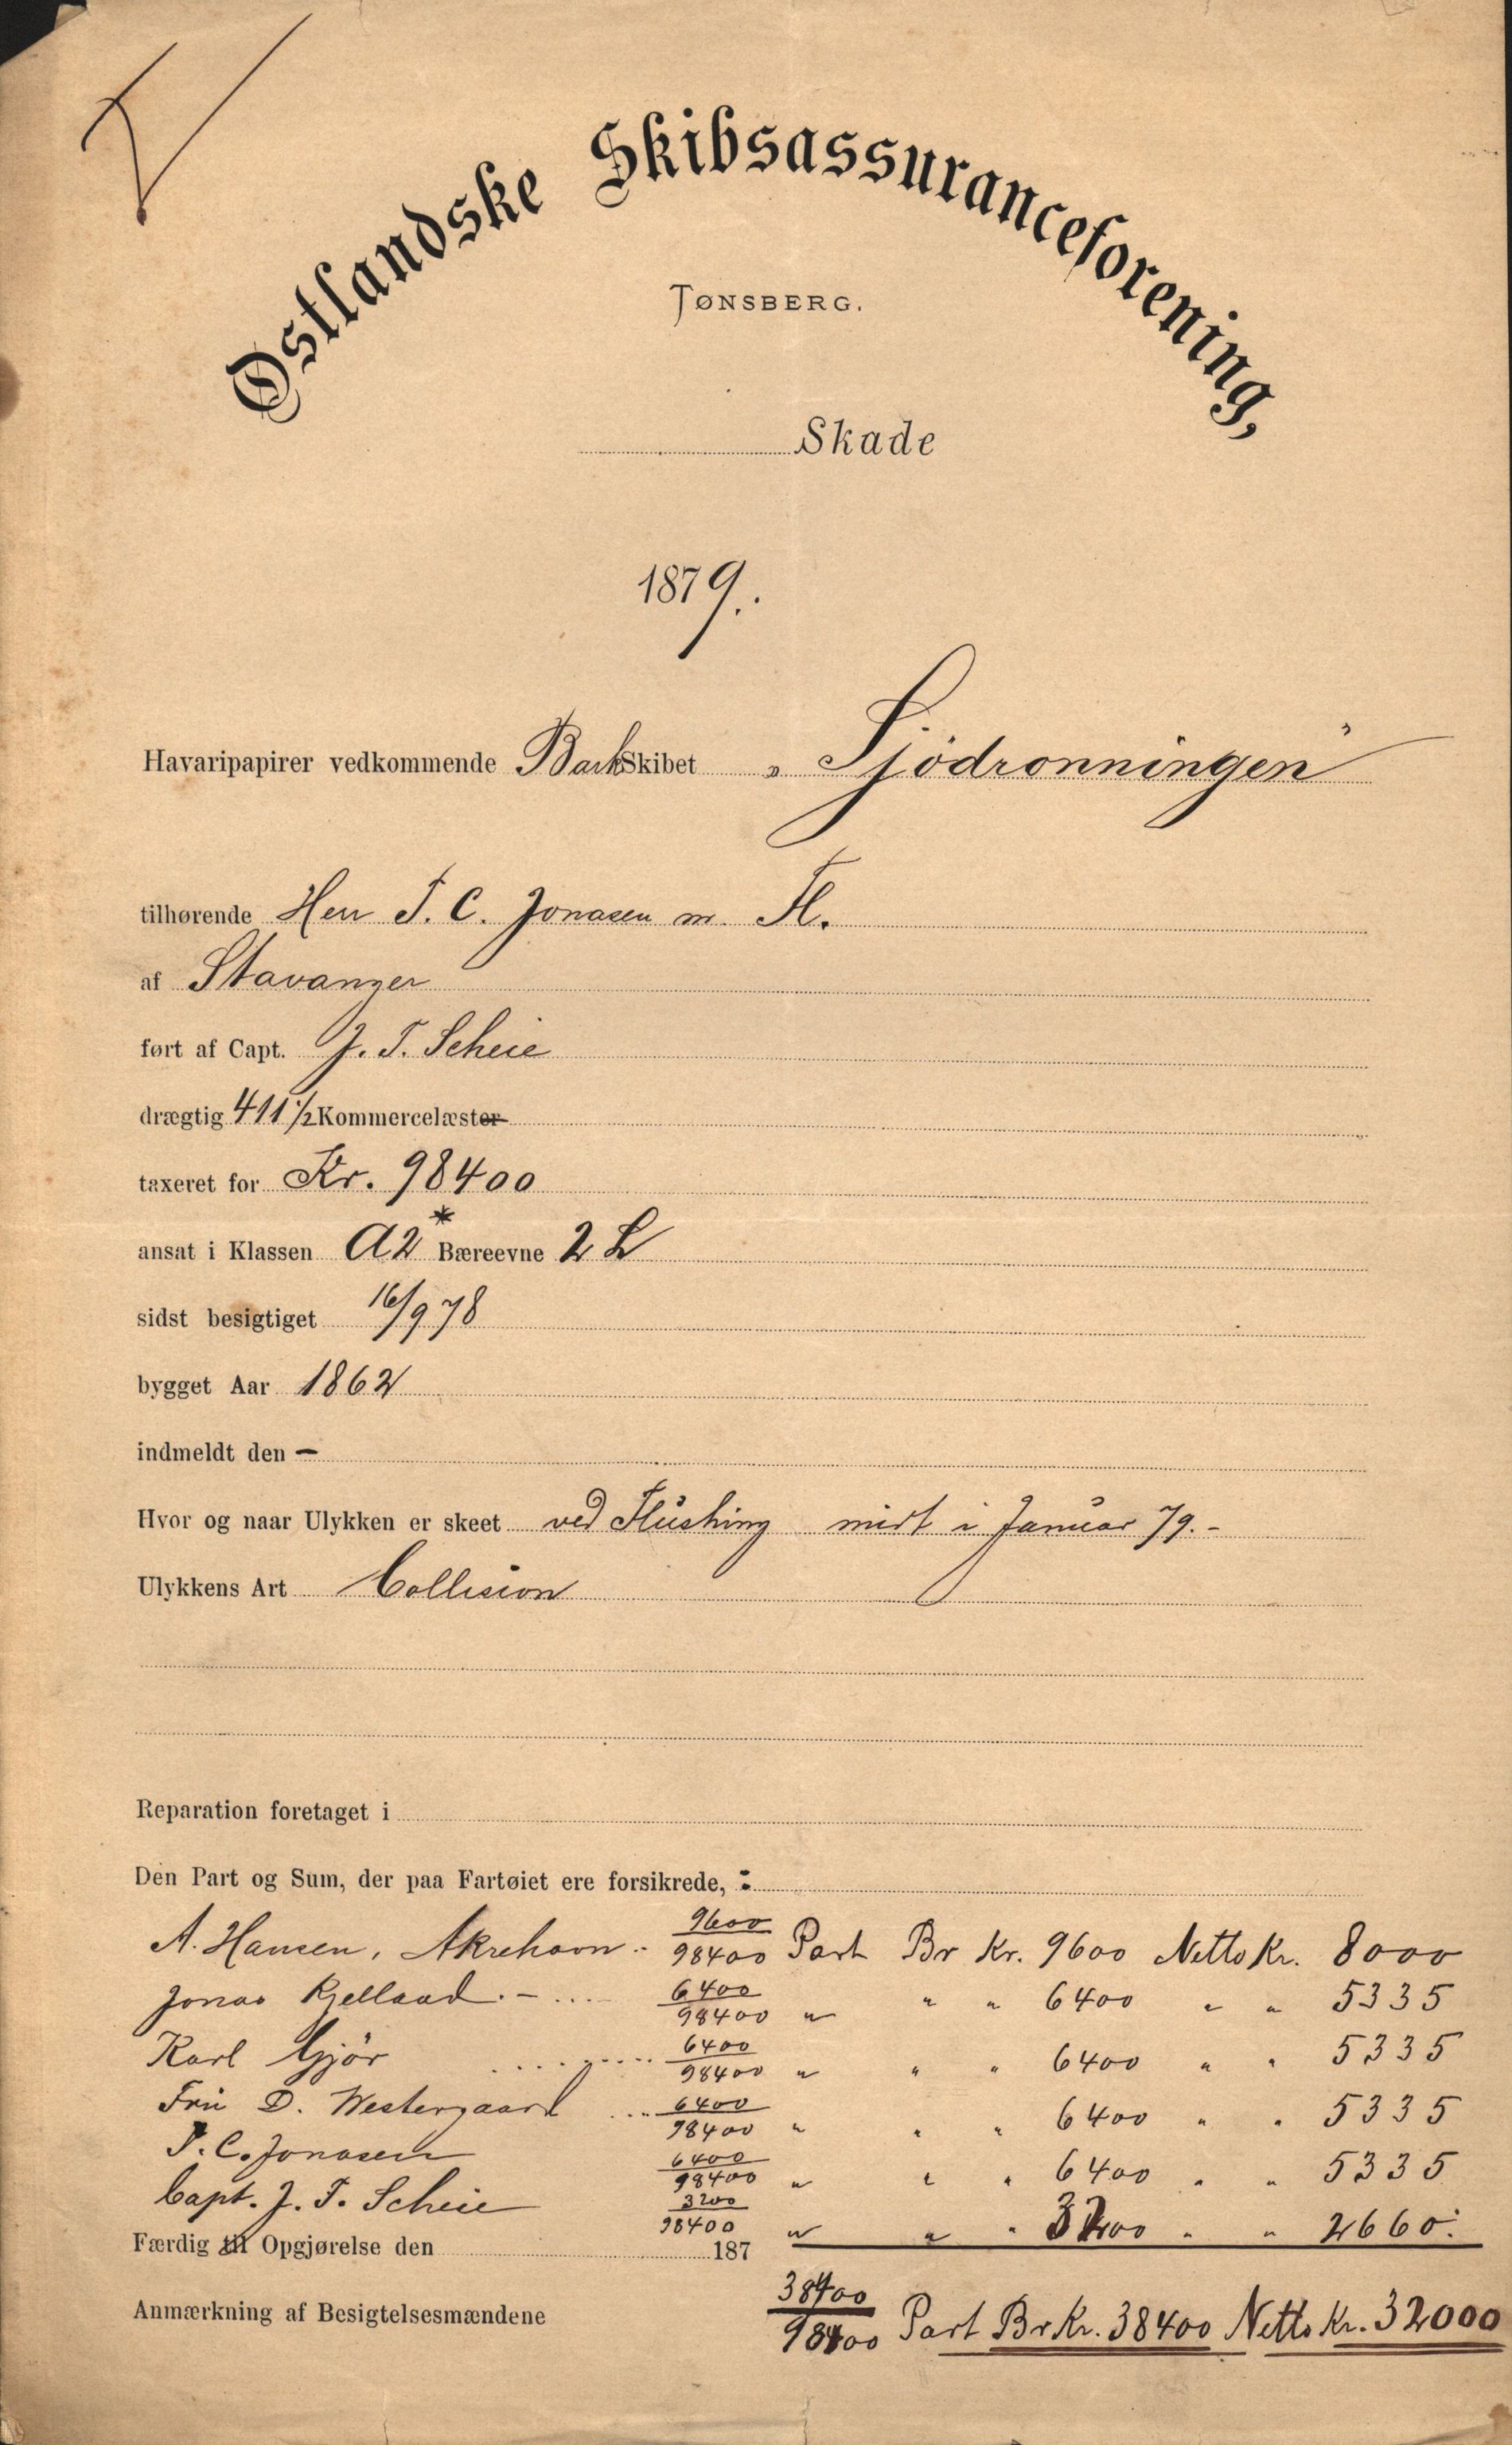 Østlandske Skibsassuranceforening,
TØNSBERG.
Skade
1879.
Havaripapirer vedkommende Bark Skibet „Sjödronningen”
tilhørende Herr T. C. Jonasen m. Fl.
af Stavanger
ført af Capt. J. T. Scheie
drægtig 411 1/2 Kommercelæster
taxeret for Kr. 98400
ansat i Klassen A2* Bæreevne 2 L
sidst besigtiget 16/9 78
bygget Aar 1862
indmeldt den —
Hvor og naar Ulykken er skeet ved Flushing midt i Januar 79.-
Ulykkens Art Collision
Reparation foretaget i
Den Part og Sum, der paa Fartøiet ere forsikrede, :
A. Hansen, Akrehavn. 9600/98400 Part Br Kr. 9600 Netto Kr. 8000
Jonas Kjelland. - ... 6400/98400 " " " 6400 " " 5335
Karl Gjör ......... 6400/98400 " " " 6400 " " 5335
Fru D. Westergaard ... 6400/98400 " " " 6400 " " 5335
T. C. Jonasen 6400/98400 " " " 6400 " " 5335
Capt. J. T. Scheie 3200/98400 " " " 3200 " " 2660.
Færdig til Opgjørelse den 187
38400/98400 Part Br Kr. 38400 Netto Kr. 32000
Anmærkning af Besigtelsesmændene